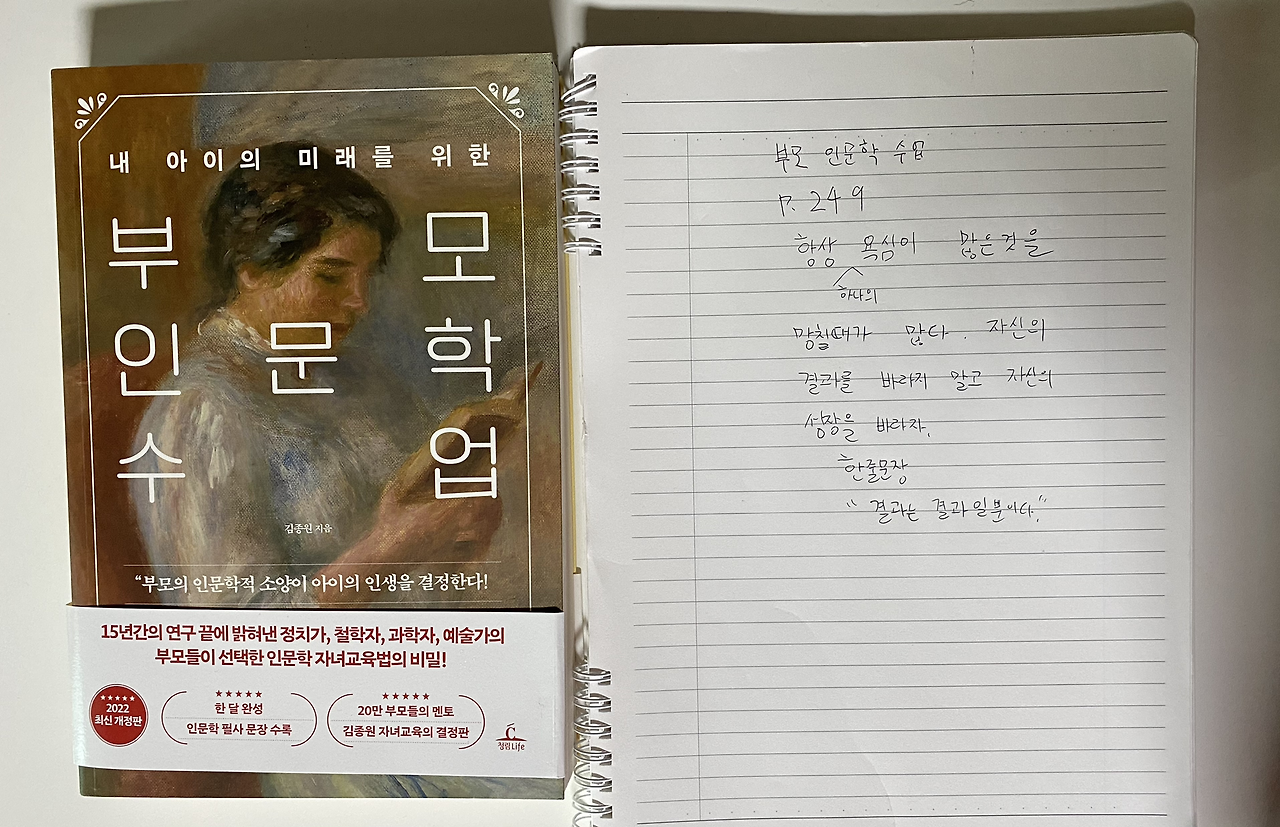 내 아이의 미래를 위한
부모
인문학
수업
김종원 지음
“부모의 인문학적 소양이 아이의 인생을 결정한다!
15년간의 연구 끝에 밝혀낸 정치가, 철학자, 과학자, 예술가의
부모들이 선택한 인문학 자녀교육법의 비밀!
★★★★★
2022
최신 개정판
★★★★★
한 달 완성
인문학 필사 문장 수록
★★★★★
20만 부모들의 멘토
김종원 자녀교육의 결정판
청림Life
부모 인문학 수업
P. 249
항상 욕심이 많은것을
하나의
망칠때가 많다. 자신의
결과를 바라지 말고 자신의
성장을 바라자.
한줄문장
“ 결과는 결과일뿐이다.”